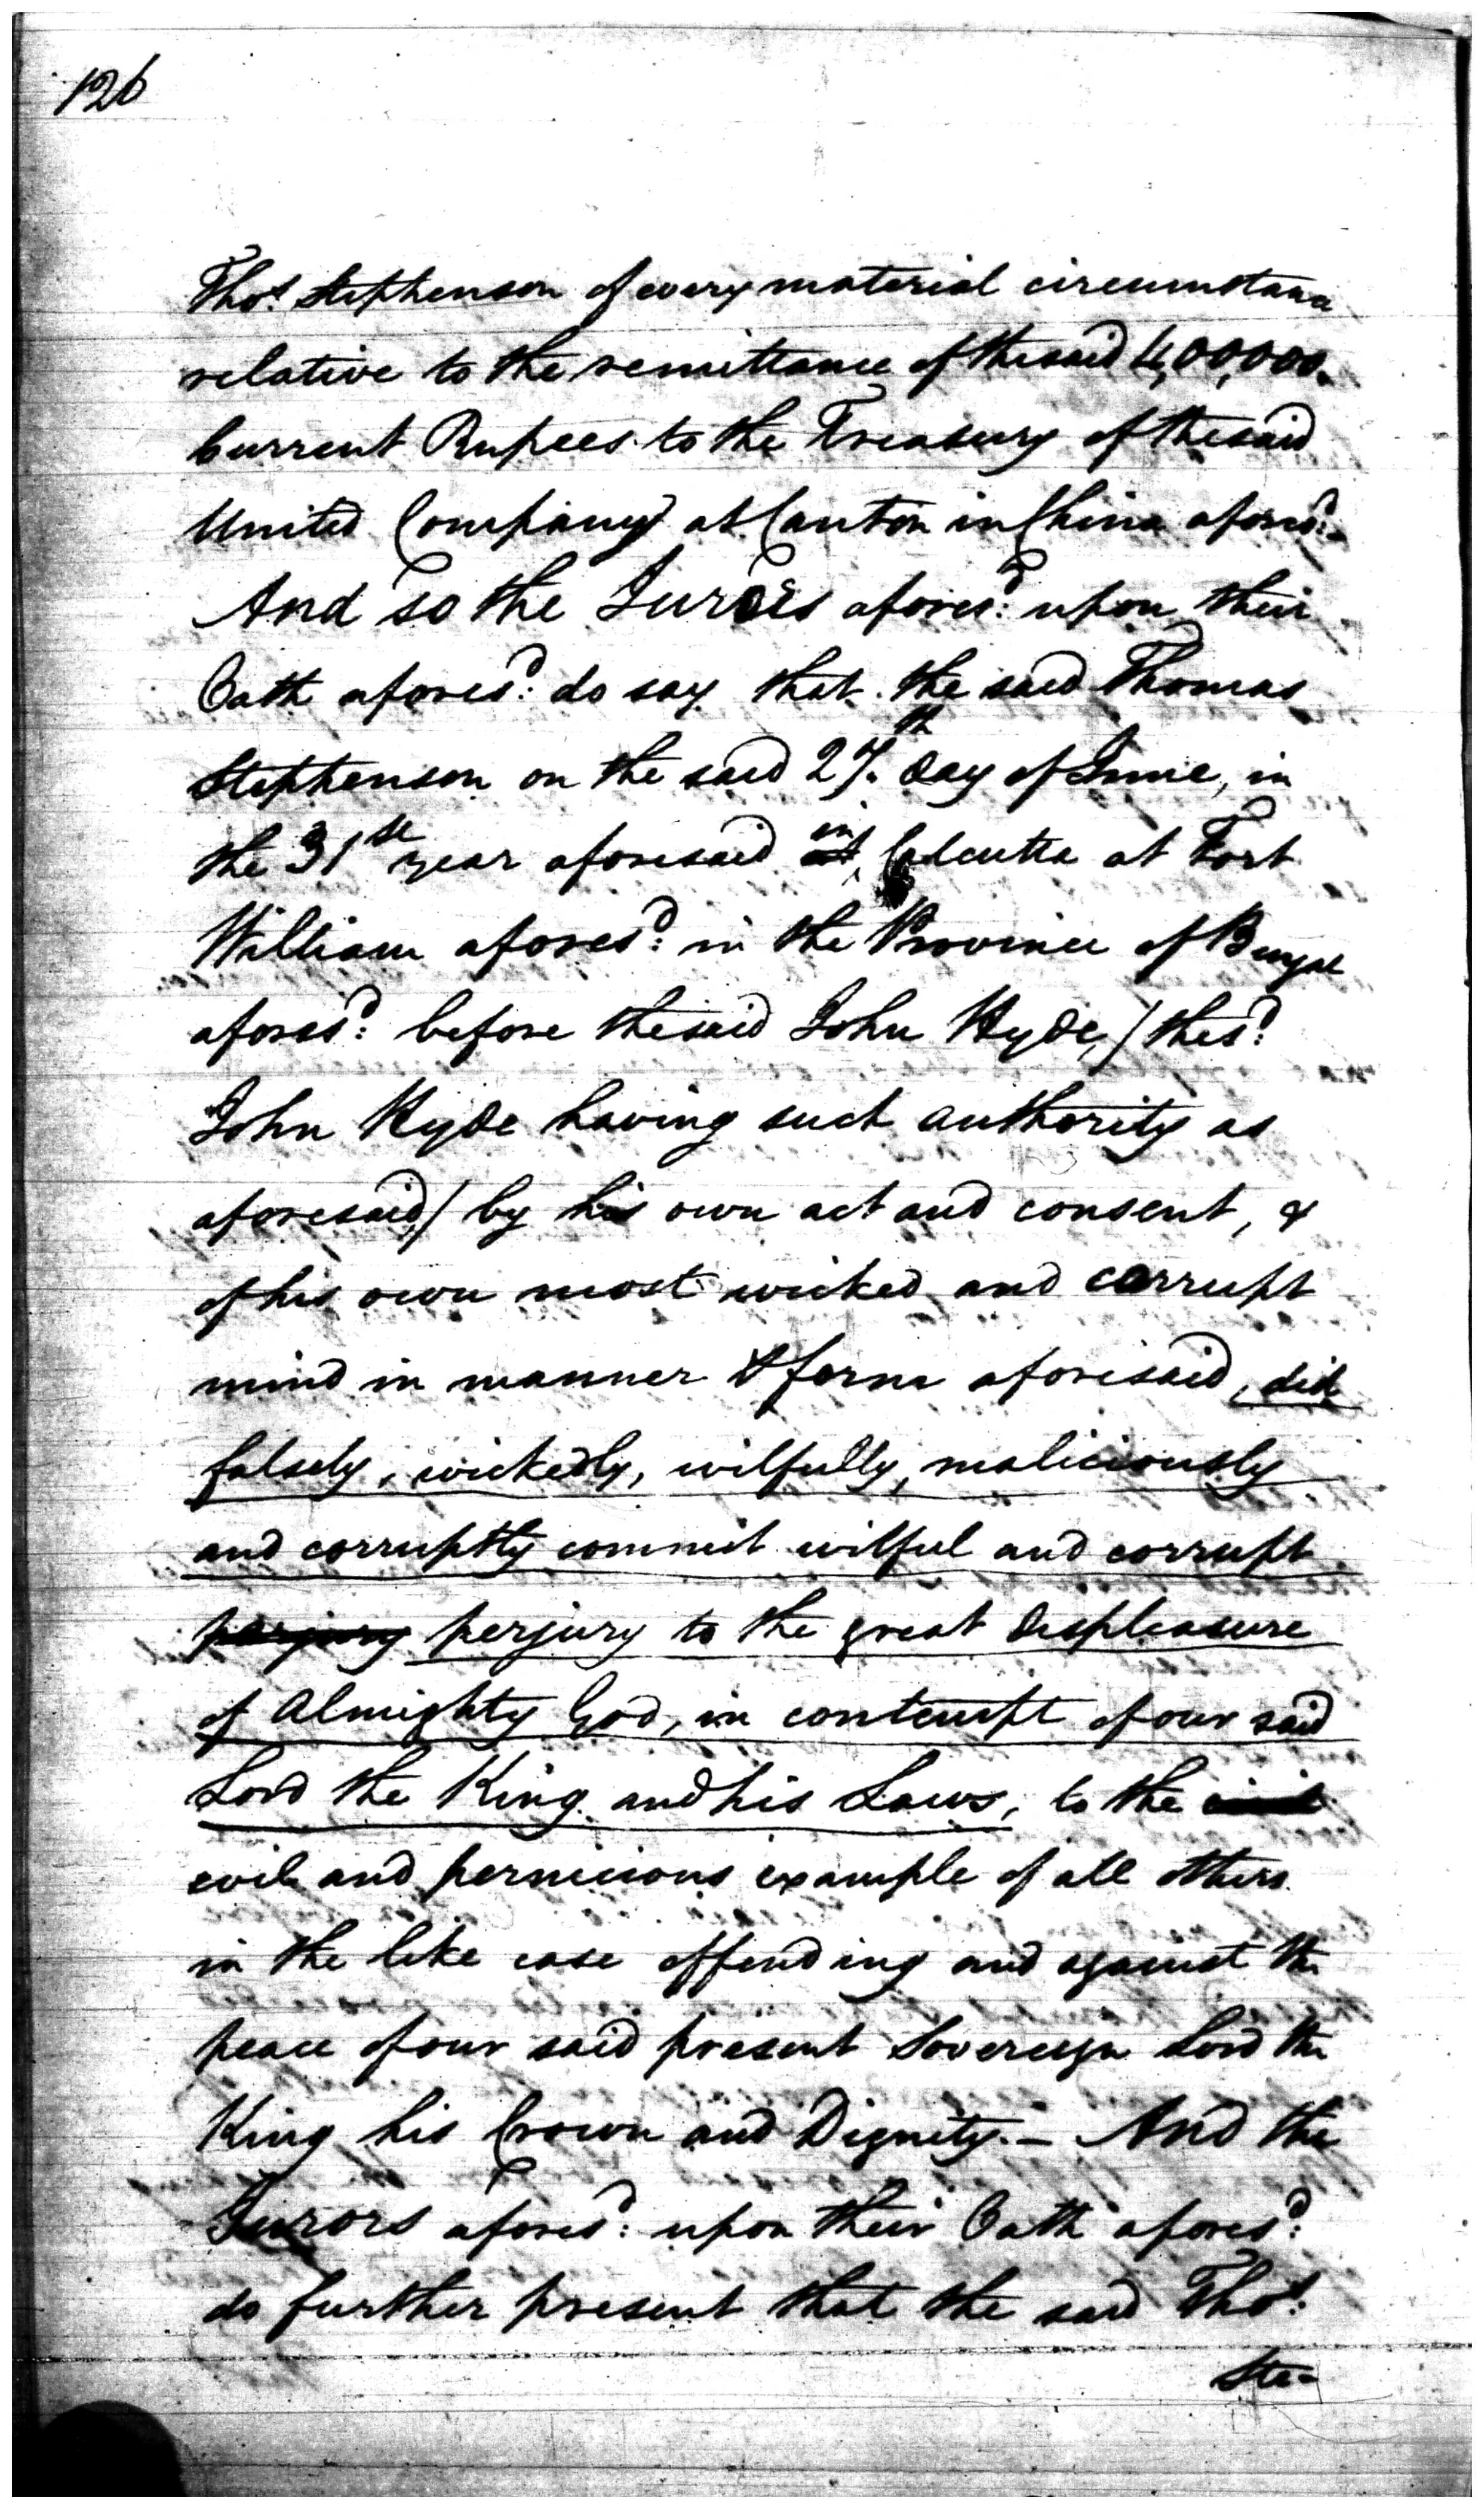 126
Thos. Stephenson of every material circumstance
relative to the remittance of the said 4,00,000.
Current Rupees to the Treasury of the said
United Company at Canton in China aforesd:
And so the Jurors aforesd: upon their
Oath aforesd: do say that the said Thomas
Stephenson on the said 27th day of June, in
the 31st year aforesaid at in Calcutta at Fort
William aforesd: in the Province of Bengal
aforesd: before the said John Hyde, / the sd:
John Hyde having such authority as
aforesaid / by his own act and consent, &
of his own most wicked and corrupt
mind in manner & form aforesaid, did
falsely, wickedly, wilfully, maliciously
and corruptly commit wilful and corrupt
perjury perjury to the great displeasure
of Almighty God, in contempt of our said
Lord the King and his Laws, to the
evil and pernicious example of all others
in the like case offending and against the
peace of our said present Sovereign Lord the
King his Crown and Dignity. - And the
Jurors aforesd: upon their Oath aforesd:
do further present that the said Thos:
Ste-